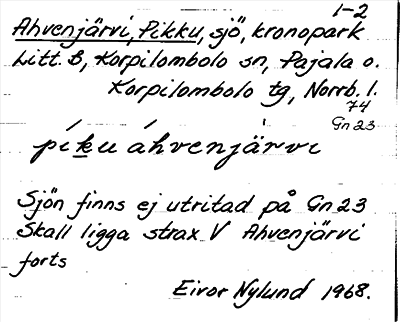 1-2
Ahvenjärvi, Pikku, sjö, kronopark
Litt. B, Korpilombolo sn, Pajala o.
Korpilombolo tg, Norrb. l.
74
Gn 23
píku áhvenjärvi
Sjön finns ej utritad på Gn 23
Skall ligga strax V Ahvenjärvi
forts
Eivor Nylund 1968.